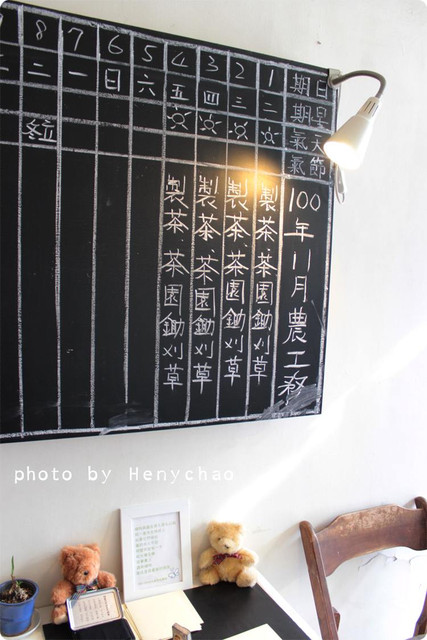 日期 1 2 3 4 5 6 7 8
星期 二 三 四 五 六 日 一 二
天氣
節氣 立冬
100年11月農工務
製茶、茶園鋤刈草
製茶、茶園鋤刈草
製茶、茶園鋤刈草
製茶、茶園鋤刈草
photo by Henychao